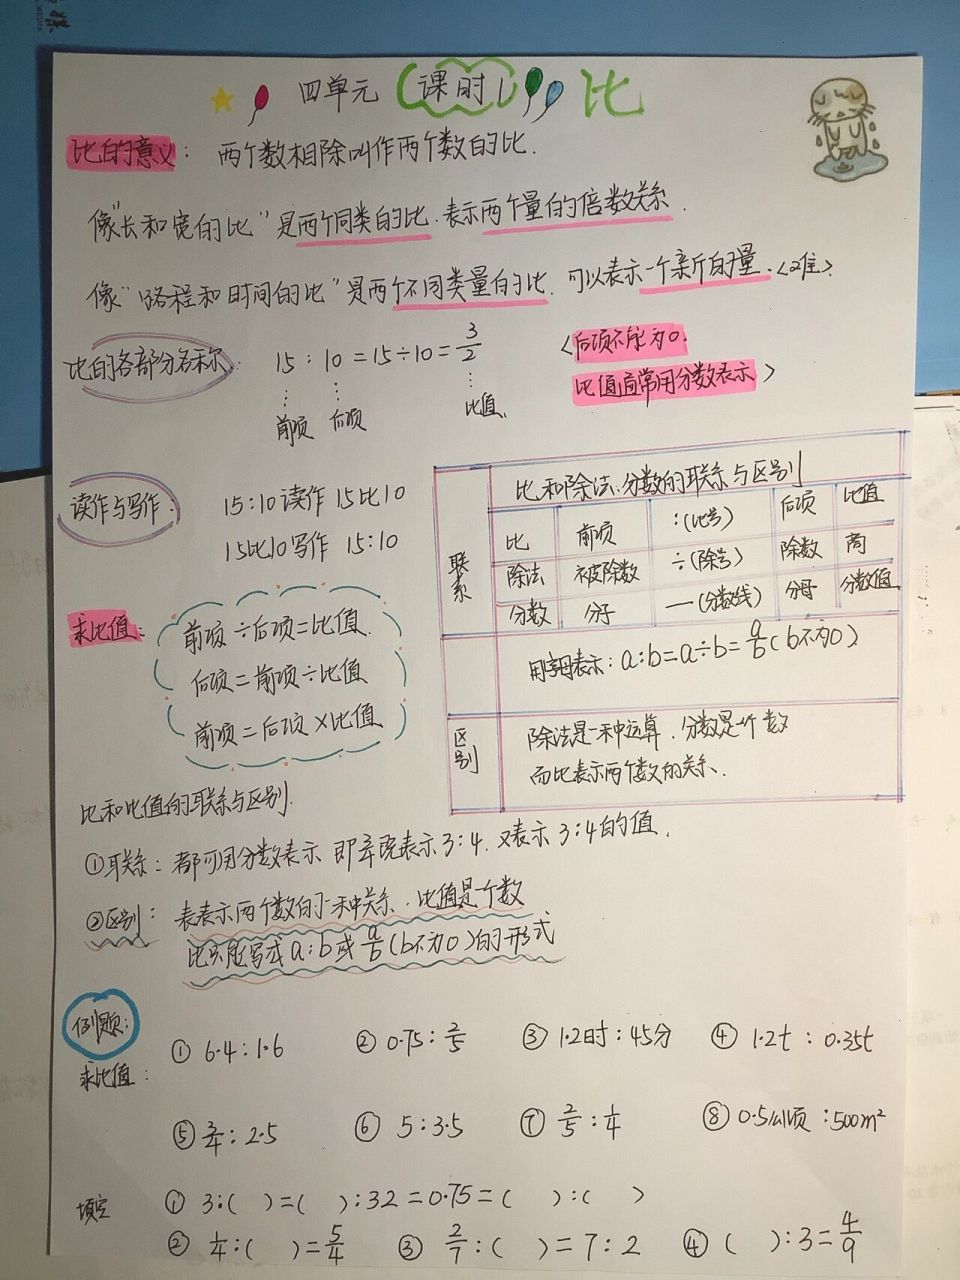 四单元 (课时1) 比
比的意义: 两个数相除叫作两个数的比.
像"长和宽的比"是两个同类的比.表示两个量的倍数关系.
像"路程和时间的比"是两个不同类量的比.可以表示一个新的量.
比的各部分名称: 15 : 10 = 15÷10 = 3/2
前项 后项 比值
<后项不能为0.
比值通常用分数表示>
读作与写作: 15:10读作 15比10
15比10写作 15:10
比和除法.分数的联系与区别
联系
比 前项 :(比号) 后项 比值
除法 被除数 ÷(除号) 除数 商
分数 分子 —(分数线) 分母 分数值
用字母表示: a:b=a÷b=a/b(b不为0)
区别
除法是一种运算.分数是一个数
而比表示两个数的关系.
求比值:
前项÷后项=比值.
后项=前项÷比值
前项=后项×比值
比和比值的联系与区别.
①联系: 都可用分数表示 即 表示3:4.又表示 3:4的值.
②区别: 表表示两个数的一种关系.比值是一个数
比只能写成a:b或a/b(b不为0)的形式
例题:
求比值:
① 6.4:1.6 ② 0.75:2/5 ③ 1.2时:45分 ④ 1.2t : 0.35t
⑤ 3/4:2.5 ⑥ 5:3.5 ⑦ 2/5:1/4 ⑧ 0.5公顷:500m²
填空
① 3:( )=( ):32=0.75=( ):( )
② 1/4:( )=5/4 ③ 2/7:( )=7:2 ④ ( ):3=4/9